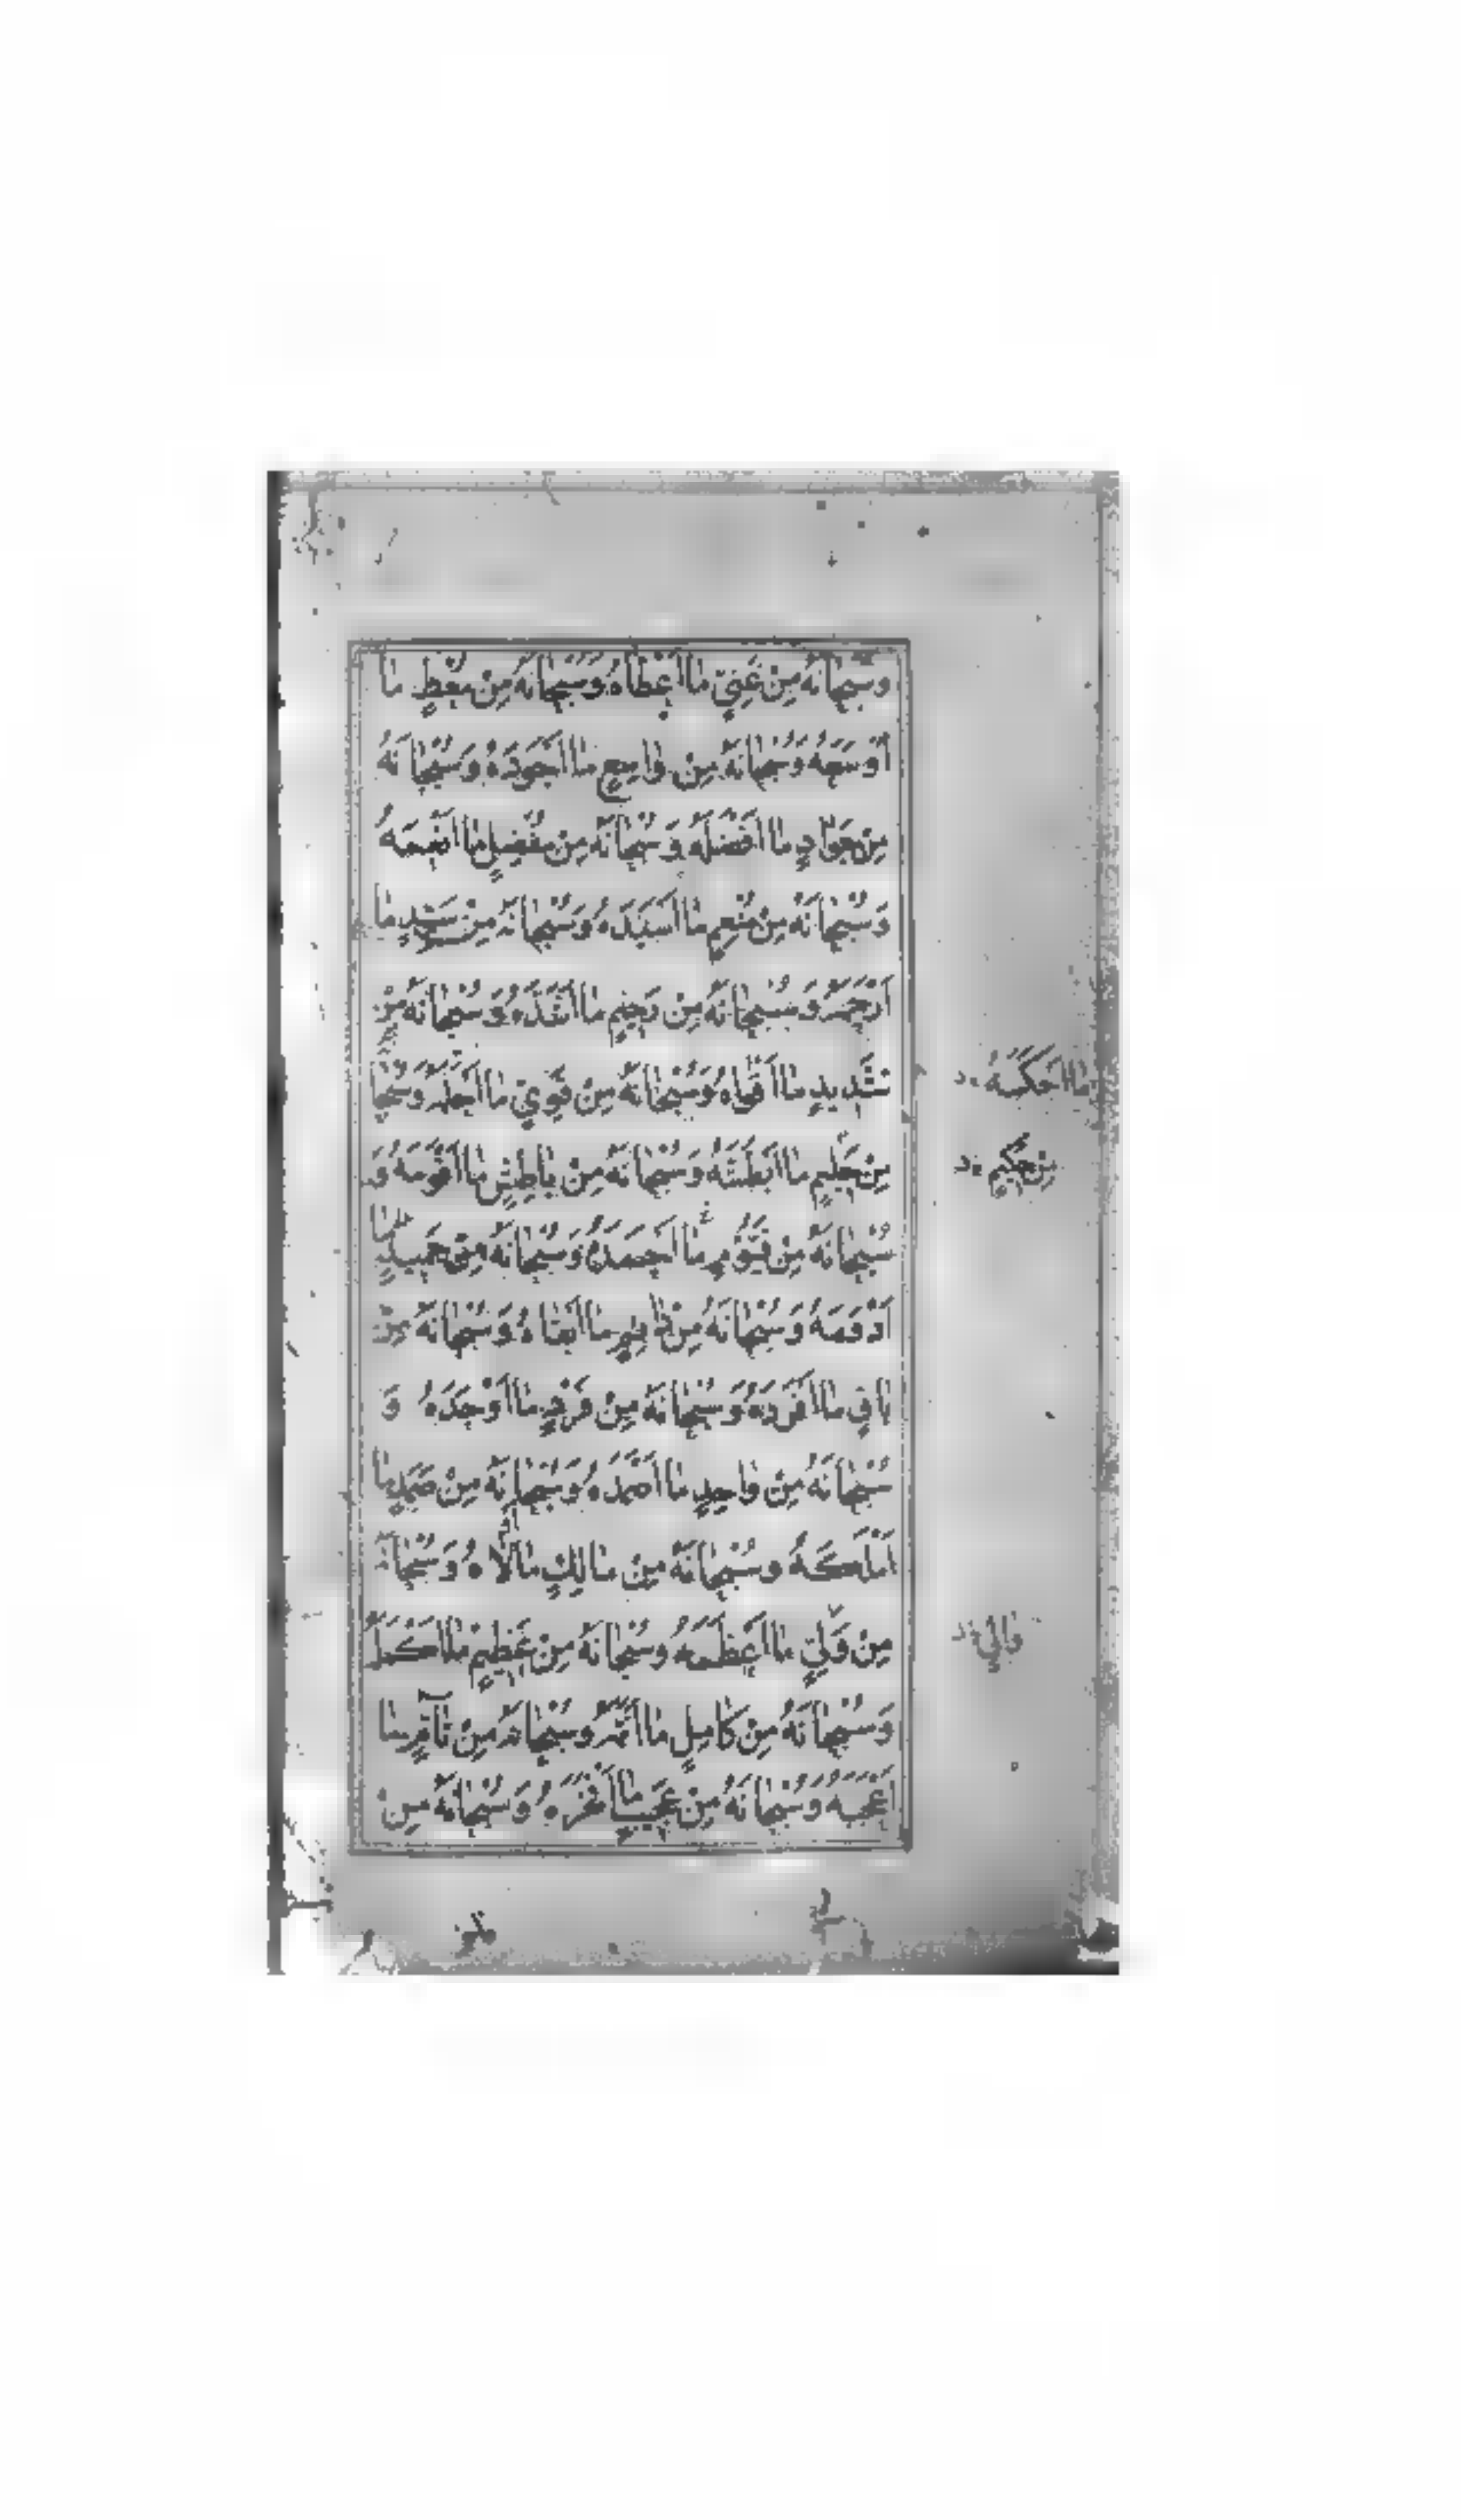 وَسُبْحانَهُ مِنْ غَنِيٍّ ما اَعْطاهُ وَسُبْحانَهُ مِنْ مُعْطٍ ما
اَوْسَعَهُ وَسُبْحانَهُ مِنْ واسِعٍ ما اَجْوَدَهُ وَسُبْحانَهُ
مِنْ جَوادٍ ما اَفْضَلَهُ وَسُبْحانَهُ مِنْ مُفْضِلٍ ما اَنْعَمَهُ
وَسُبْحانَهُ مِنْ مُنْعِمٍ ما اَسْيَدَهُ وَسُبْحانَهُ مِنْ سَيِّدٍ ما
اَرْحَمَهُ وَسُبْحانَهُ مِنْ رَحِيمٍ ما اَشَدَّهُ وَسُبْحانَهُ مِنْ
شَدِيدٍ ما اَقْواهُ وَسُبْحانَهُ مِنْ قَوِيٍّ ما
ما احكمه
مِنْ ما اَبْطَشَهُ وَسُبْحانَهُ مِنْ باطِشٍ ما اَقْوَمَهُ وَ
من حكيم
سُبْحانَهُ مِنْ قَيُّومٍ ما اَحْمَدَهُ وَسُبْحانَهُ مِنْ حَمِيدٍ ما
اَدْوَمَهُ وَسُبْحانَهُ مِنْ دائِمٍ ما اَبْقاهُ وَسُبْحانَهُ مِنْ
باقٍ ما اَفْرَدَهُ وَسُبْحانَهُ مِنْ فَرْدٍ ما اَوْحَدَهُ وَ
سُبْحانَهُ مِنْ واحِدٍ ما اَصْمَدَهُ وَسُبْحانَهُ مِنْ صَمَدٍ ما
اَمْلَكَهُ وَسُبْحانَهُ مِنْ مالِكٍ ما اَوْلاهُ وَسُبْحانَهُ
مِنْ وَلِيٍّ ما اَعْظَمَهُ وَسُبْحانَهُ مِنْ عَظِيمٍ ما اَكْمَلَهُ
والي
وَسُبْحانَهُ مِنْ كامِلٍ ما اَتَمَّهُ وَسُبْحانَهُ مِنْ تآمٍّ ما
اَعْجَبَهُ وَسُبْحانَهُ مِنْ عَجِيبٍ ما اَفْخَرَهُ وَسُبْحانَهُ مِنْ